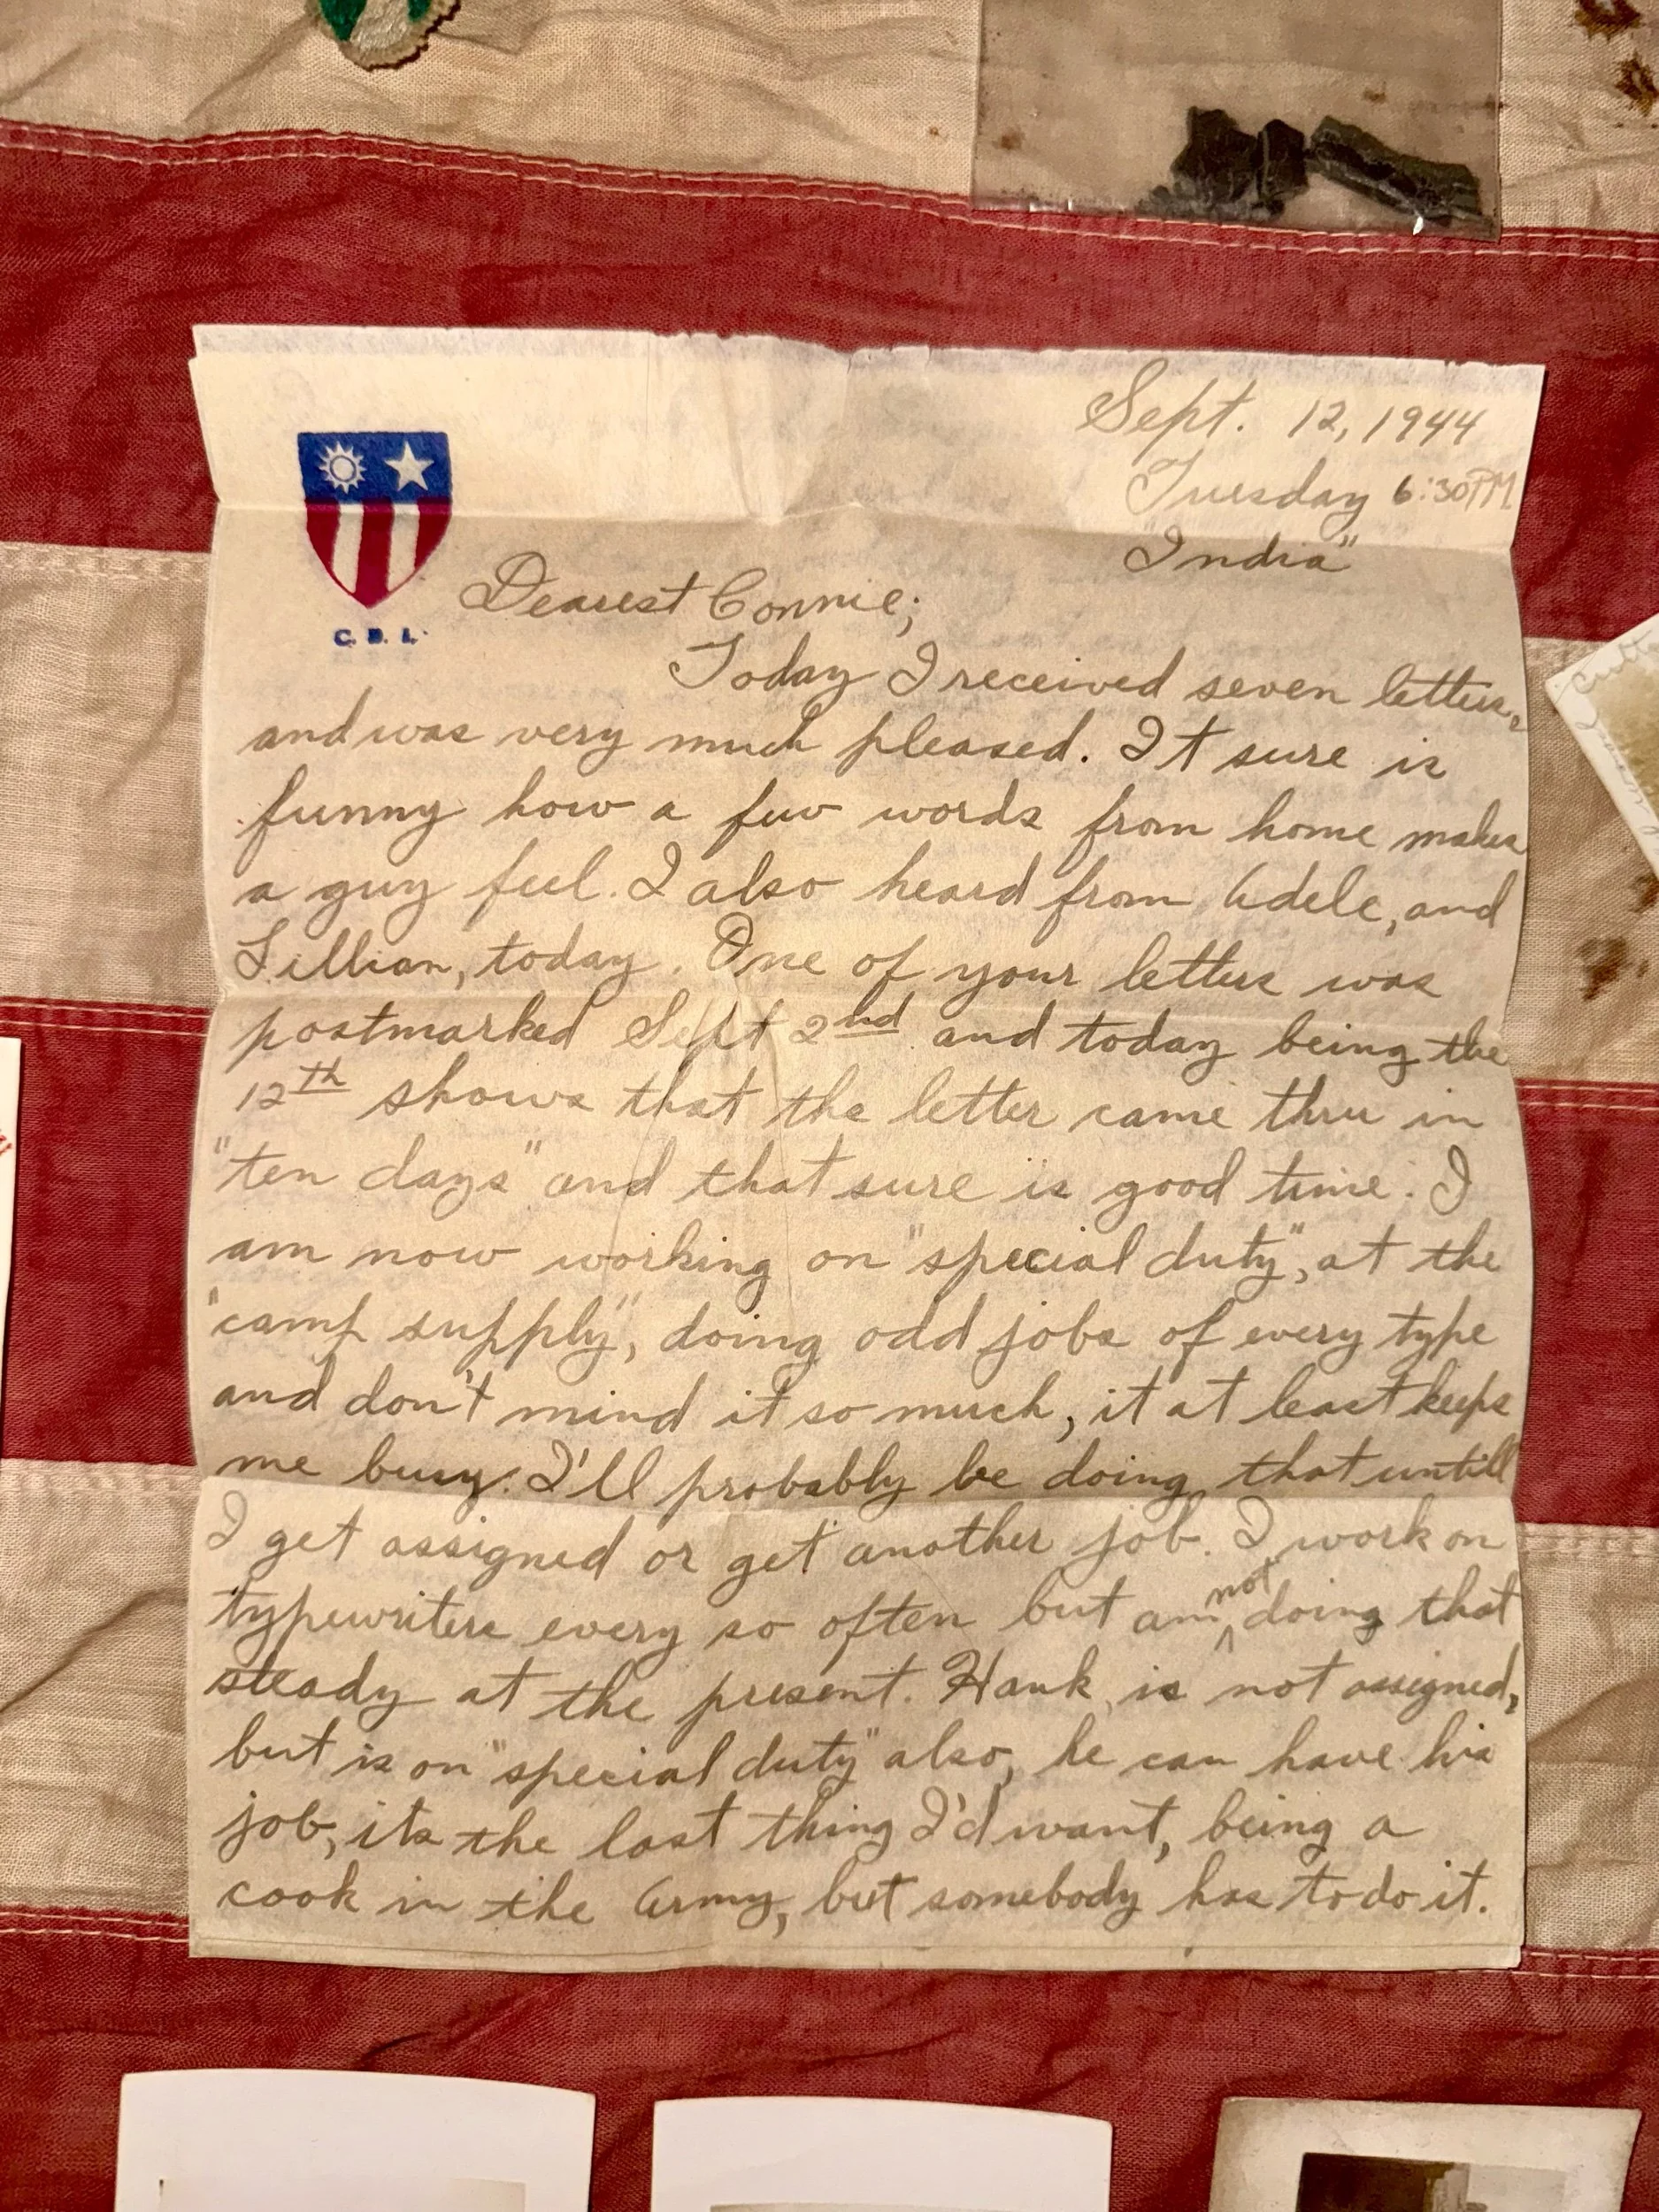 Sept. 12, 1944
Tuesday 6:30PM
"India"
C. B. I.
Dearest Connie;
Today I received seven letters,
and was very much pleased. It sure is
funny how a few words from home makes
a guy feel. I also heard from Adele, and
Lillian, today. One of your letters was
postmarked Sept 2nd and today being the
12th shows that the letter came thru in
"ten days" and that sure is good time. I
am now working on "special duty", at the
"camp supply", doing odd jobs of every type
and don't mind it so much, it at least keeps
me busy. I'll probably be doing that untill
I get assigned or get another job. I work on
typewriters every so often but am not doing that
steady at the present. Hank, is not assigned,
but is on "special duty" also, he can have his
job, its the last thing I'd want, being a
cook in the Army, but somebody has to do it.